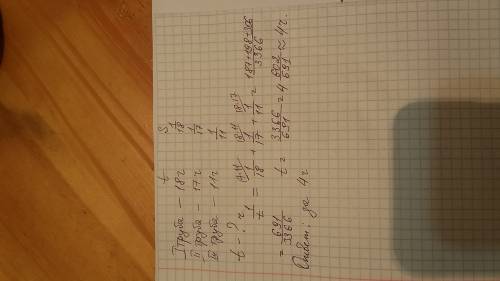 t S
I труба – 18ч 1/18
II труба – 17ч 1/17
III труба – 11ч 1/11
t – ? ч
1/t = 1/18 + 1/17 + 1/11 = (187+198+306)/3366
17·11 18·11 18·17
= 691/3366 t = 3366/691 = 4 602/691 ≈ 4ч.
Ответ: за 4ч